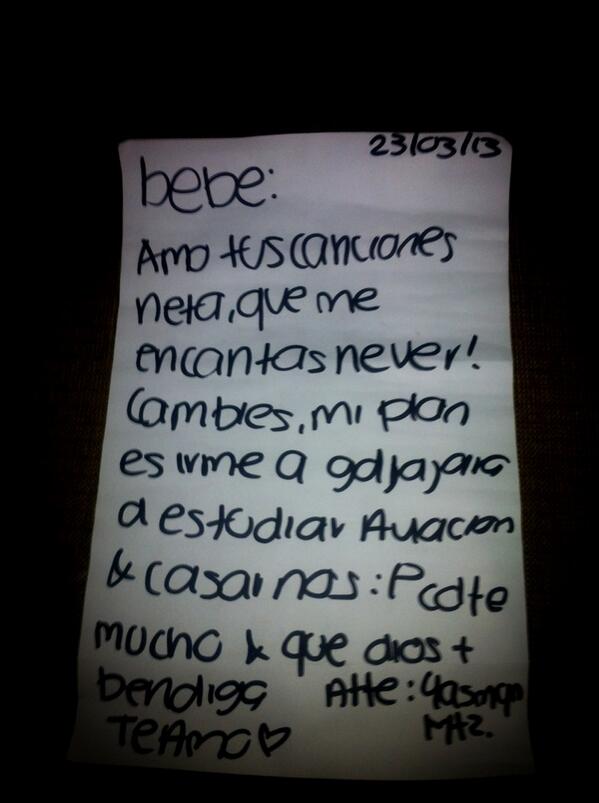 23/03/13
bebe:
Amo tus canciones
neta, que me
encantas never!
Cambies, mi plan
es irme a gdljajara
a estudiar Aviacion
& casarnos :P cdte
mucho & que dios t
bendiga Atte:
TeAmo♡ Mtz.